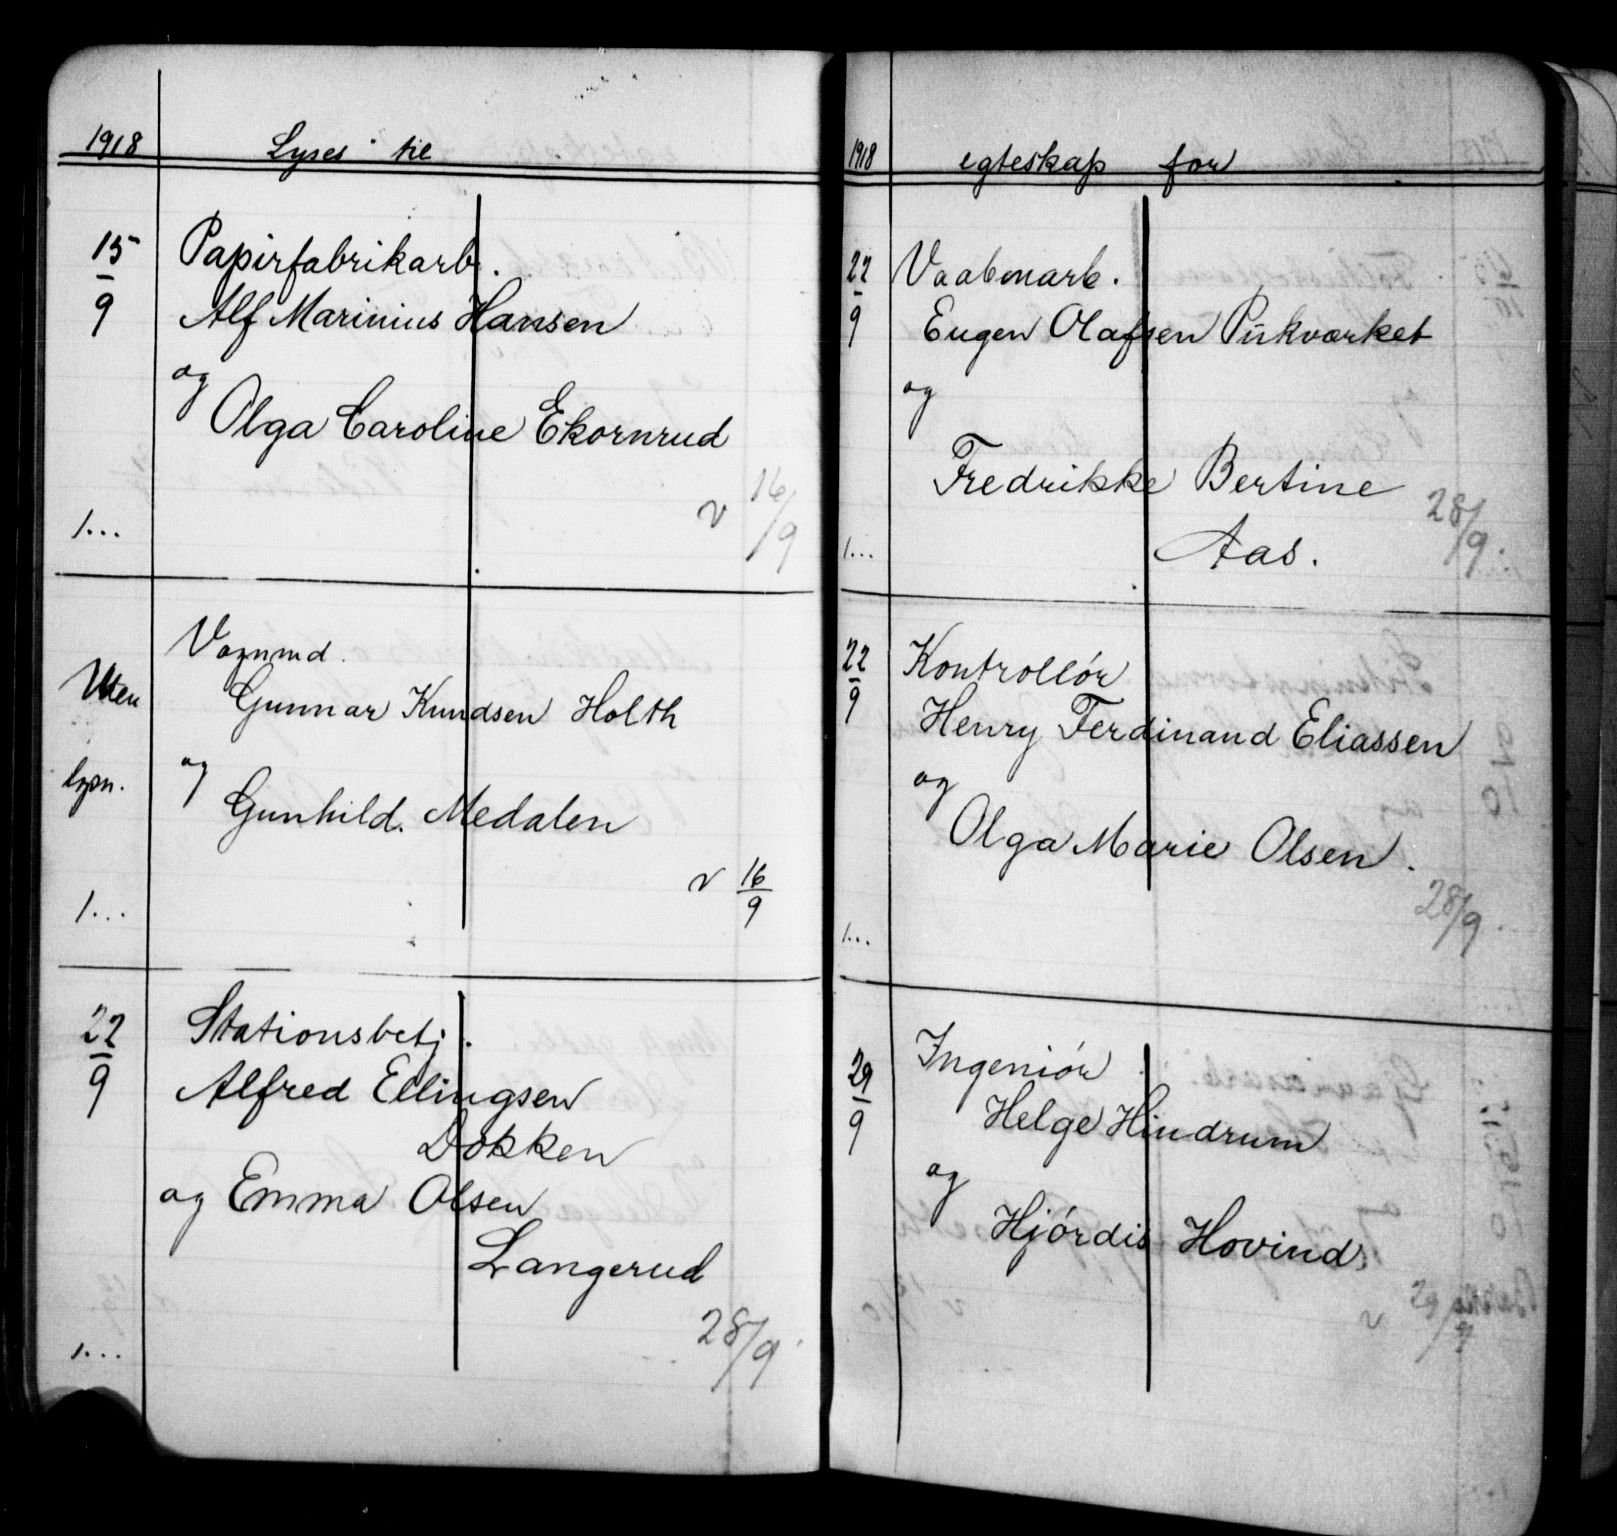 1918 Lyses til
15/9 Papirfabrikarb.
Alf Marinius Hansen
og
Olga Caroline Ekornrud
v 16/9
1...
Vognmd.
Uten
Gunnar Knudsen Holth
og
lysn.
Gunhild. Medalen
v 16/9
1...
22/9 Stationsbetj.
Alfred Ellingsen
Dokken
og Emma Olsen
Langerud
28/9
1...
1918 egteskap for
22/9 Vaabenarb.
Eugen Olafsen Pukværket
og
Fredrikke Bertine
28/9
1... Aas.
22/9 Kontrollór
Henry Ferdinand Eliassen
og
Olga Marie Olsen.
28/9
1...
29/9 Ingeniór
Helge Hindrum
og
Hjórdis Hovind
v 29/9